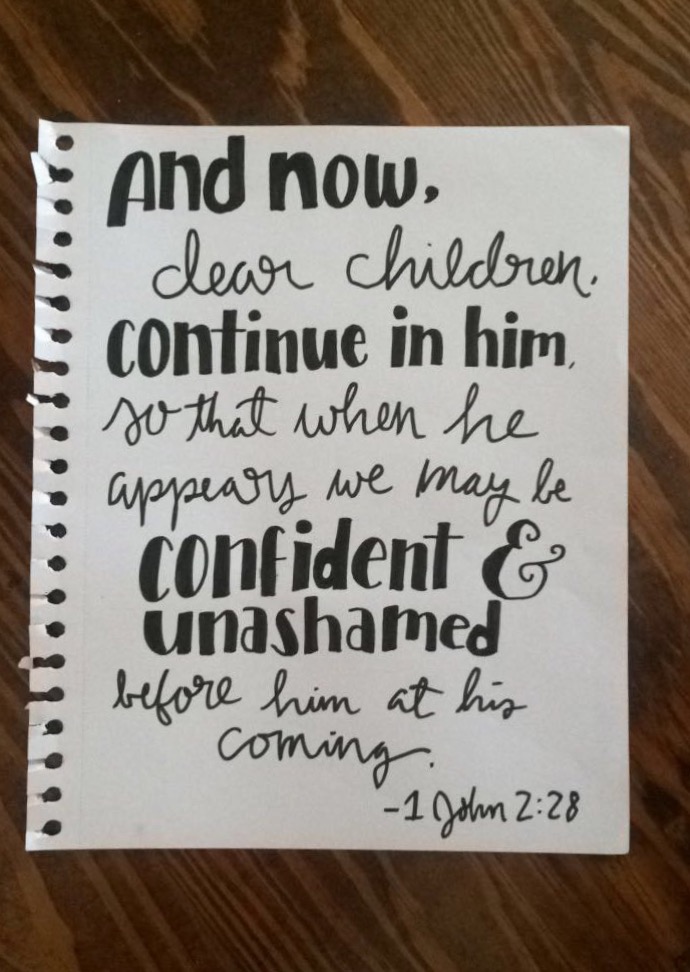 And now,
dear children,
continue in him,
so that when he
appears we may be
confident &
unashamed
before him at his
coming.
-1 John 2:28